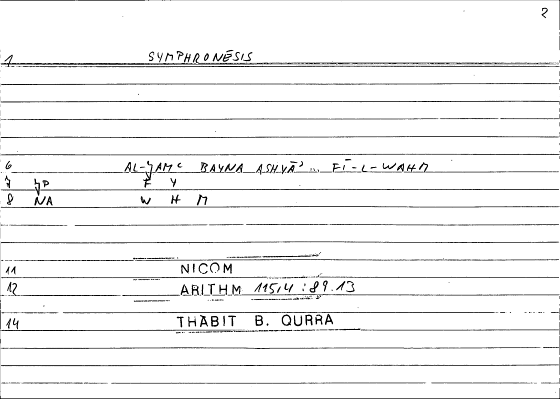 2
1 SYMPHRONĒSIS
6 AL-ǮAMᶜ BAYNA ASHYĀʾ ... FĪ-L-WAHM
7 ǮP F Y
8 NA W H M
11 NICOM
12 ARITHM 115,4 : 89.13
14 THĀBIT B. QURRA